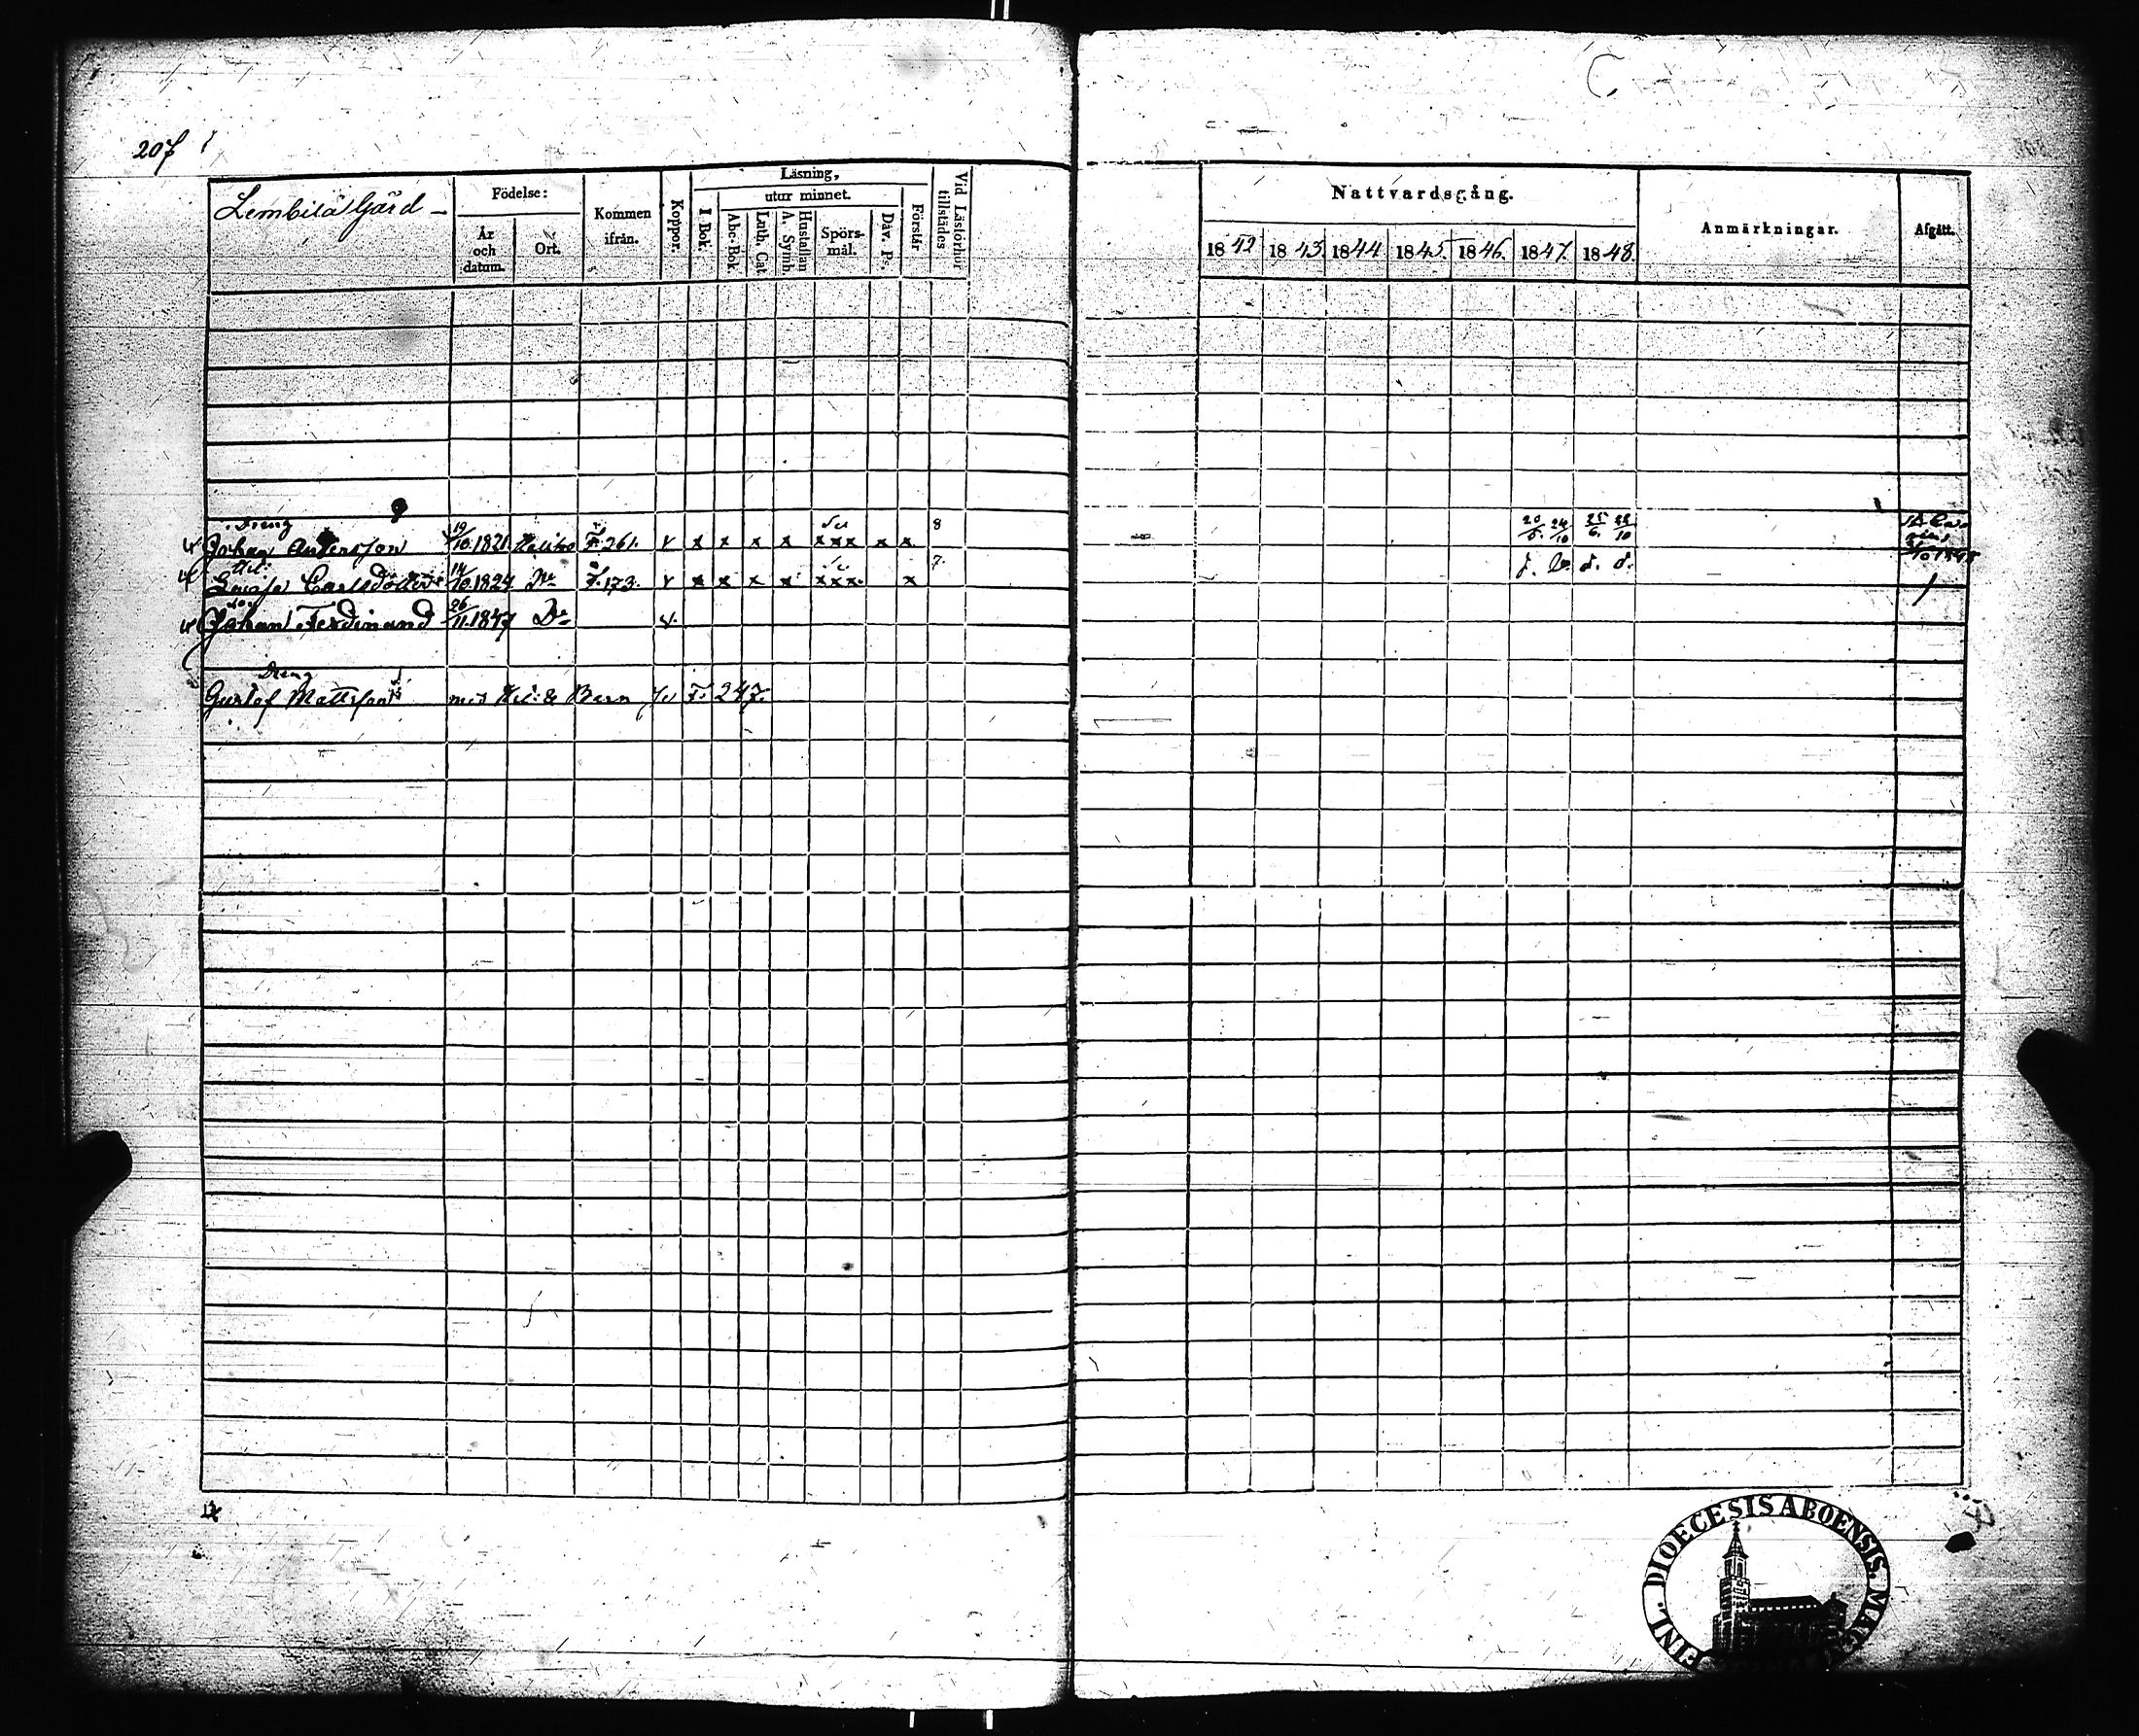 207
Lembilä Gård –
Födelse:
År och datum.
Ort.
Kommen ifrån.
Koppor.
Läsning,
utur minnet.
I Bok.
Abc-Bok.
Luth. Cat
Hustaflan A. Symb.
Spörs-mål.
Dav. Ps.
Förstår
Vid Läsförhör tillstädes
Nattvardsgång.
1842 1843. 1844 1845. 1846. 1847. 1848.
Anmärkningar.
Afgått.
Dreng
Johan Andersson 19/10. 1821 F. 261. x x x x xxx x x 8 20/6. 24/10 25/6. 22/10
Lovisa Carlsdotter 14/10. 1824 Do F. 173. x x x x xxx. x 7. d. d.
Johan Ferdinand 26/11. 1847 Do
Dreng
Gustof Mattsson med & Barn F. 247.
FINL. DIOECESIS ABOENSIS.